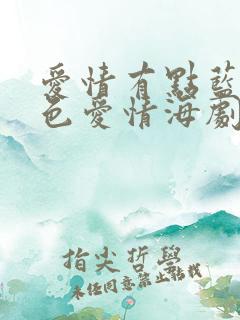 愛情有點藍
色愛情海劇
指尖哲學
未經同意禁止轉載